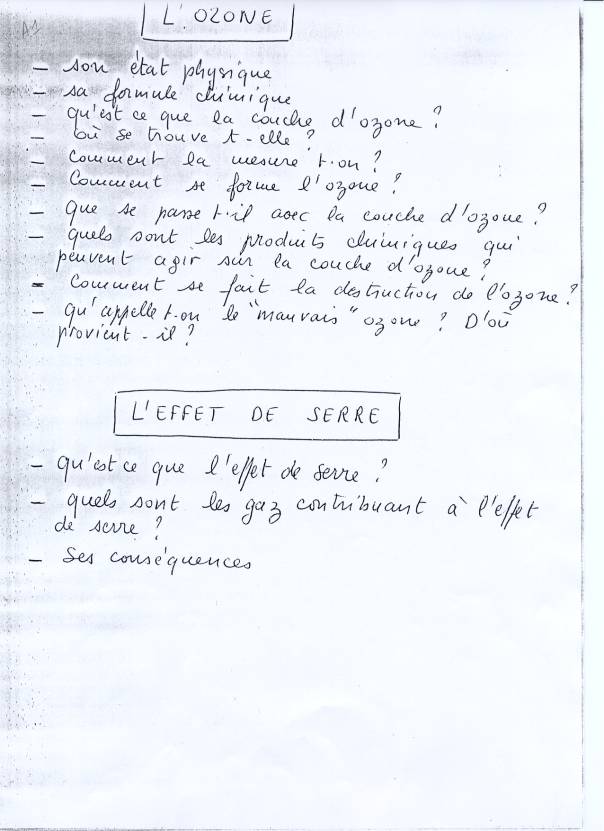 A1
L'OZONE
- son état physique
- sa formule chimique
- qu'est ce que la couche d'ozone ?
- où se trouve t-elle ?
- Comment la mesure t-on ?
- Comment se forme l'ozone ?
- que se passe t-il avec la couche d'ozone ?
- quels sont les produits chimiques qui
peuvent agir sur la couche d'ozone ?
- Comment se fait la destruction de l'ozone ?
- qu'appelle t-on le "mauvais" ozone ? D'où
provient-il ?
L'EFFET DE SERRE
- qu'est ce que l'effet de serre ?
- quels sont les gaz contribuant à l'effet
de serre ?
- Ses conséquences